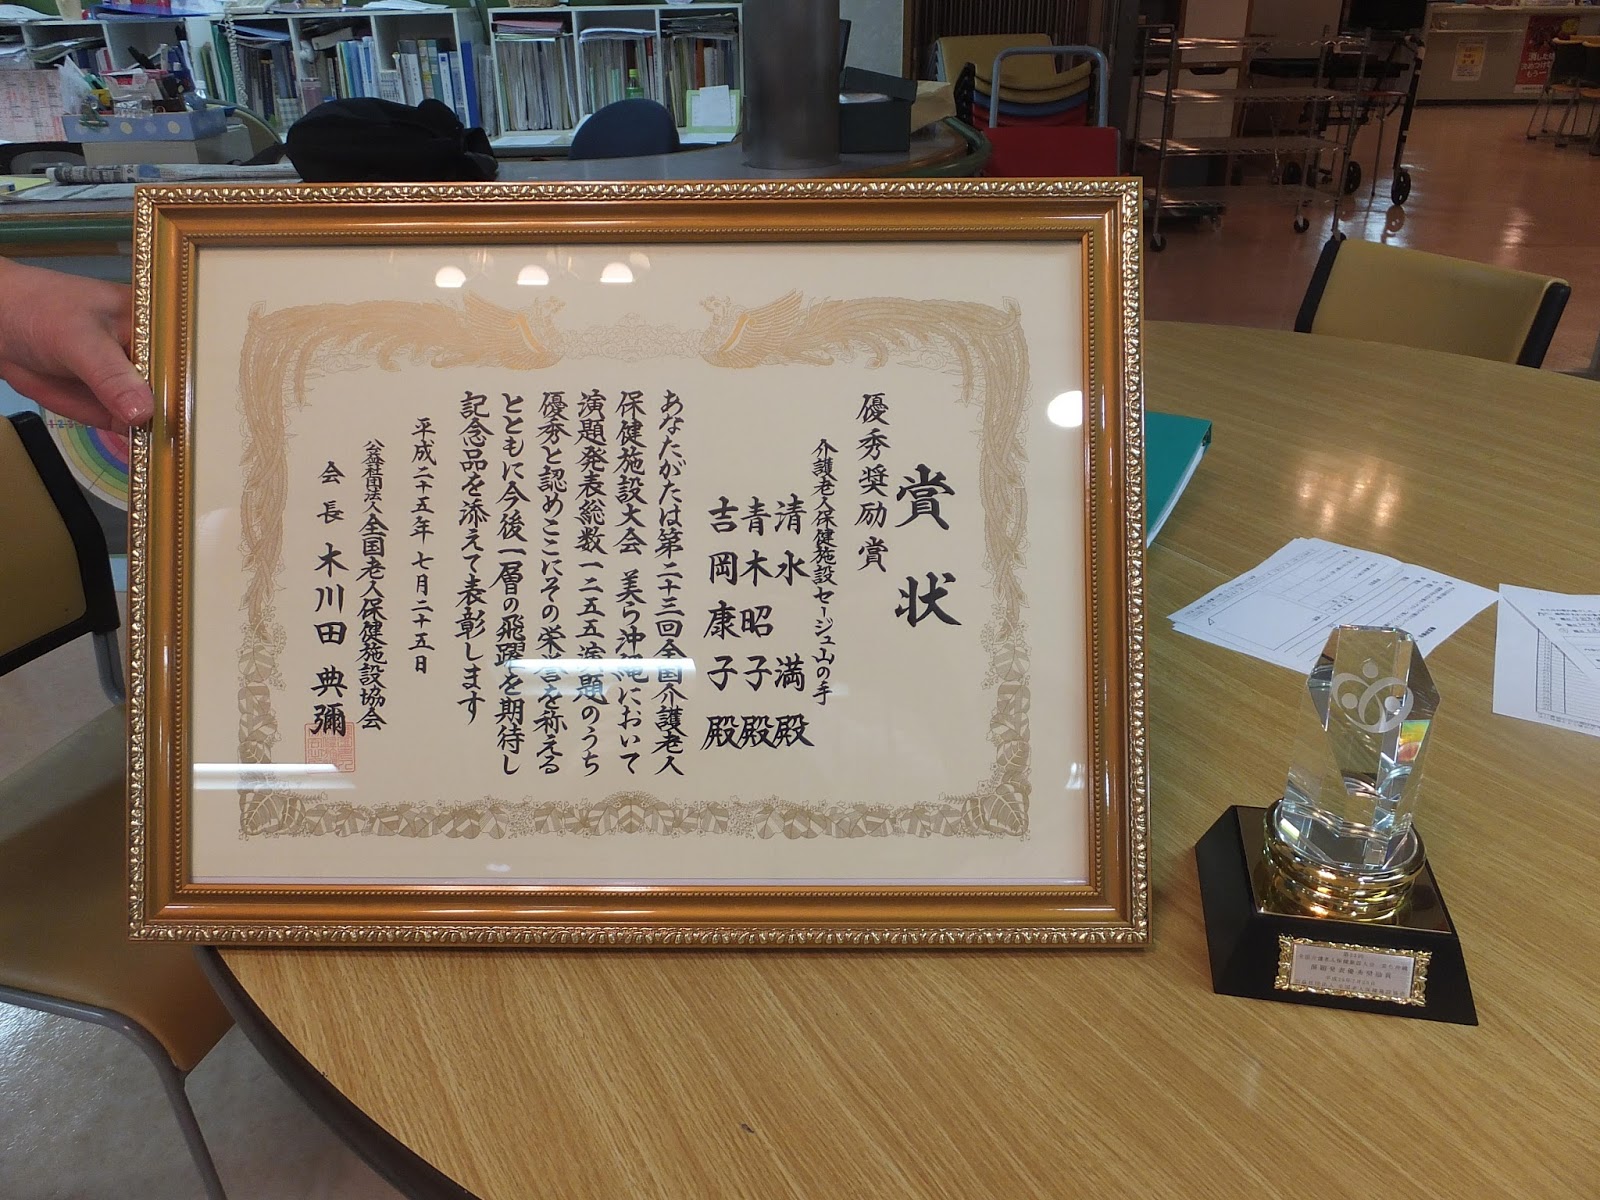 賞状
優秀奨励賞
介護老人保健施設セージュ山の手
清水 満殿
青木昭子殿
吉岡康子殿
あなたがたは第二十三回全国介護老人
保健施設大会 美ら沖縄において
演題発表総数一二五五演題のうち
優秀と認めここにその栄誉を称える
とともに今後一層の飛躍を期待し
記念品を添えて表彰します
平成二十五年 七月二十五日
公益社団法人全国老人保健施設協会
会長 木川田典彌